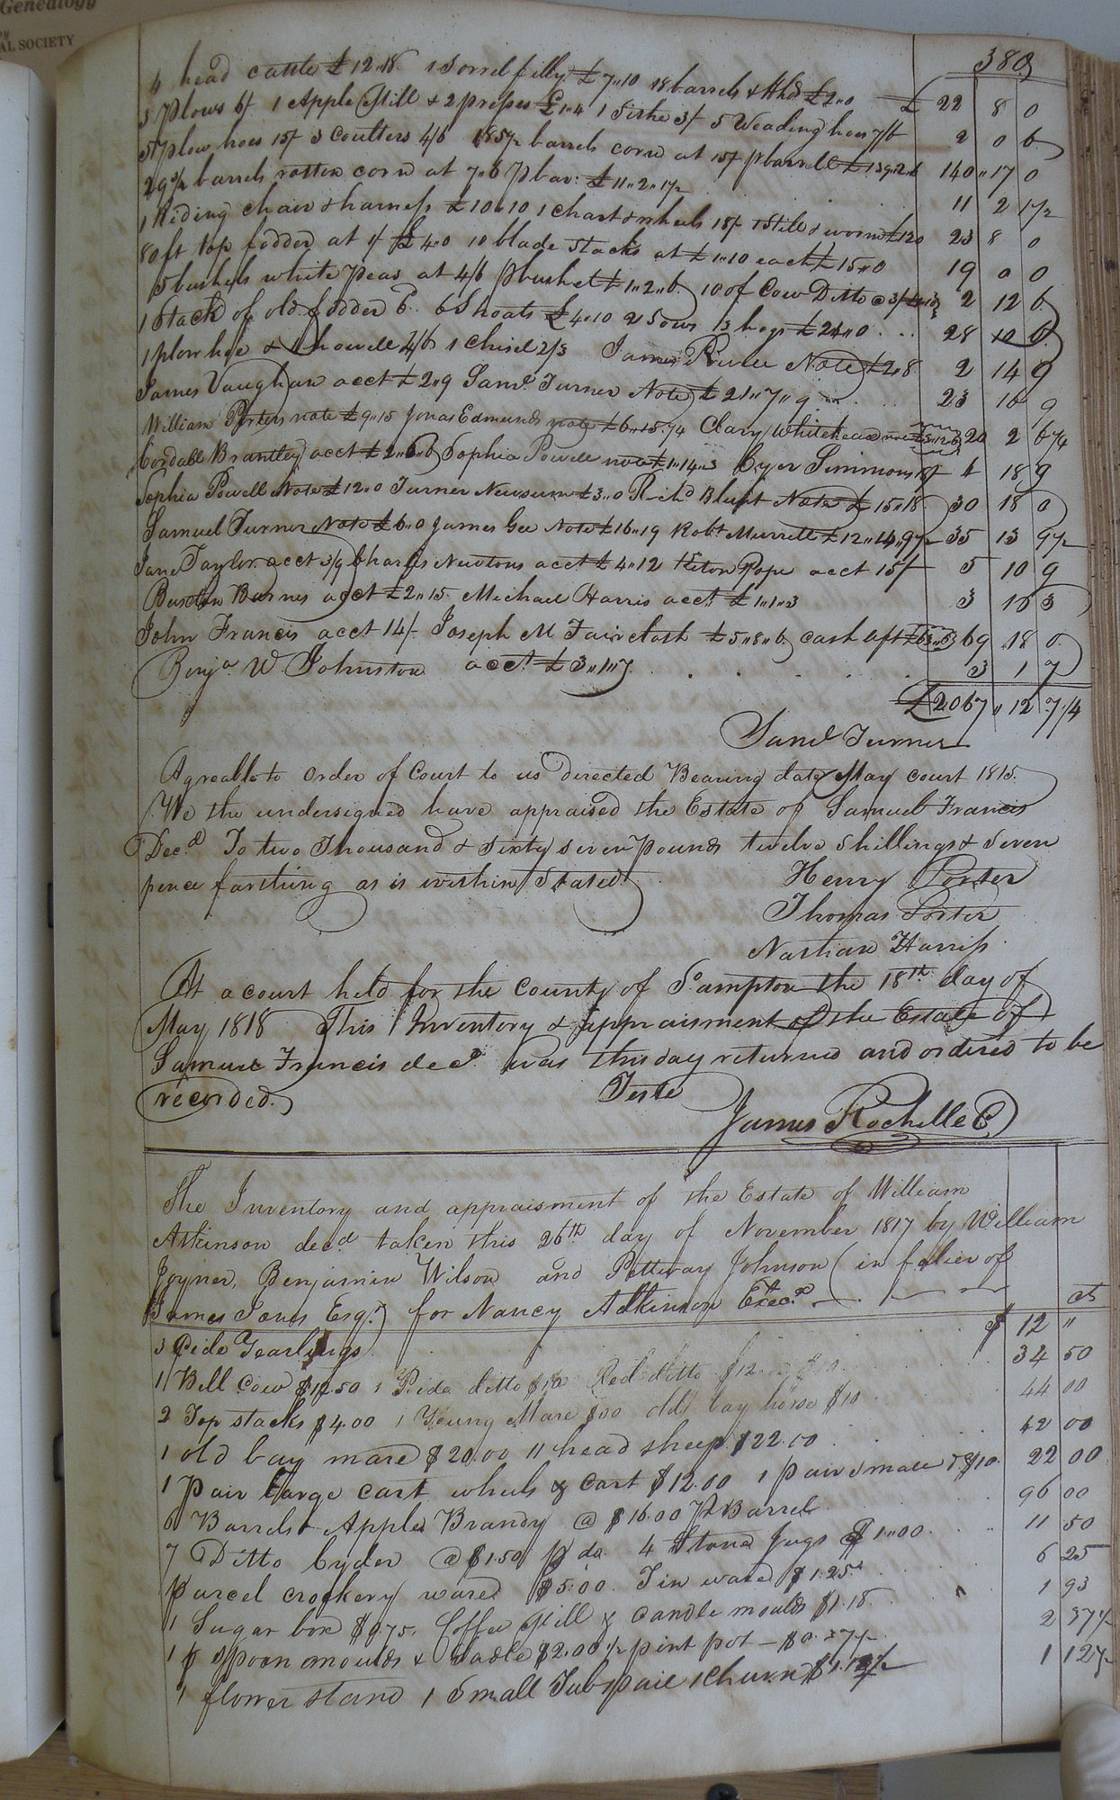 Genealogy
AL SOCIETY
383
4 head cattle £12..18 1 Sorrel filly £7..10 18 barrels & Hhd £2..0 £ 22 8 0
3 Plows 6/ 1 Apple Mill & 2 presses £1..4 1 Sithe 3/ 5 Weading hoes 7/6 2 0 6
5 Plow hoes 15/ 3 Coulters 4/6 185 1/2 barrels corn at 15/ p barrell £139..2..6 140..17 0
29 3/4 barrels rotten corn at 7..6 p bar: £11..2..1 1/2 11 2 1 1/2
1 Riding chair & harness £10..10 1 chart & wheels 18/ 1 Still & worm £12..0 23 8 0
80 ft top fodder at 1/ £4..0 10 blade Stacks at £1..10 each £15..0 19 0 0
5 bushels white peas at 4/6 p bushel £1..2..6 10 of Cow Ditto @ 3/ 2 12 6
1 Stack of old fodder 6 Shoats £4..10 2 Sows 13 hogs £24..0 28 10 0
1 plow hoe & 1 howell 4/6 1 Chisel 2/3 James Note £2..8 2 14 9
James Vaughan acct £2..9 Saml Turner Note £21..7..9 23 16 9
William Porters note £9..15 Jonas Edmunds note £6..15..7 1/4 Clary Whitehead note £3..12 20 2 6 1/4
Cordall Brantley acct £2..6..6 Sophia Powell note £1..14..3 Cyer Simmons 4 18 9
Sophia Powell Note £12..0 Turner Newsum £3..0 Richd Blunt Note £15..18 30 18 0
Samuel Turner Note £6..0 James Gee Note £16..19 Robt Murrell £12..14..9 1/2 35 13 9 1/2
Jane Taylor acct 3/9 Charles Newtons acct £4..12 Pope acct 15/ 5 10 9
Burton Barnes acct £2..15 Michael Harris acct £1..1..3 3 16 3
John Francis acct 14/ Joseph M Faircloth £5..8..6 cash 69 18 0
Benja W. Johnston acct £3..1..7 3 1 7
£2067..12 7 1/4
Saml Turner
Agreable to order of Court to us directed Bearing date May court 1815
We the undersigned have appraised the Estate of Samuel Francis
Decd To two Thousand & Sixty seven pounds twelve Shillings & Seven
pence farthing as is within Stated
Henry Porter
Thomas Porter
Nathan Harriss
At a court held for the County of So.ampton the 18th day of
May 1818 This Inventory & appraisment of the Estate of
Samuel Francis decd was this day returned and ordered to be
recorded. Teste
James Rochelle C
The Inventory and appraisment of the Estate of William
Atkinson decd taken this 26th day of November 1817 by William
Joyner, Benjamin Wilson and Pettway Johnson (in of
James Jones Esqr) for Nancy Atkinson Execx
cts
3 Pide Yearlings $ 12 "
1 Bell Cow $12.50 1 Pide ditto Red ditto $12 34 50
2 Top stacks $4.00 1 Young Mare old bay horse $10 44 00
1 old bay mare $20.00 11 head sheep $22.00 42 00
1 Pair large cart wheels & Cart $12.00 1 pair small $10 22 00
6 Barrels Apple Brandy @ $16.00 p Barrel 96 00
7 Ditto Cyder @ $1.50 p do 4 Stone Jugs $1.00 11 50
parcel crockery ware $5.00 Tin ware $1.25 6 25
1 Sugar box $0.75 Coffee Mill & candle moulds $1.18 1 93
1 p spoon moulds & Ladle $2.00 1/2 pint pot $0.37 1/2 2 37 1/2
1 flower stand 1 Small Tub 1 pail 1 churn $1.12 1/2 1 12 1/2